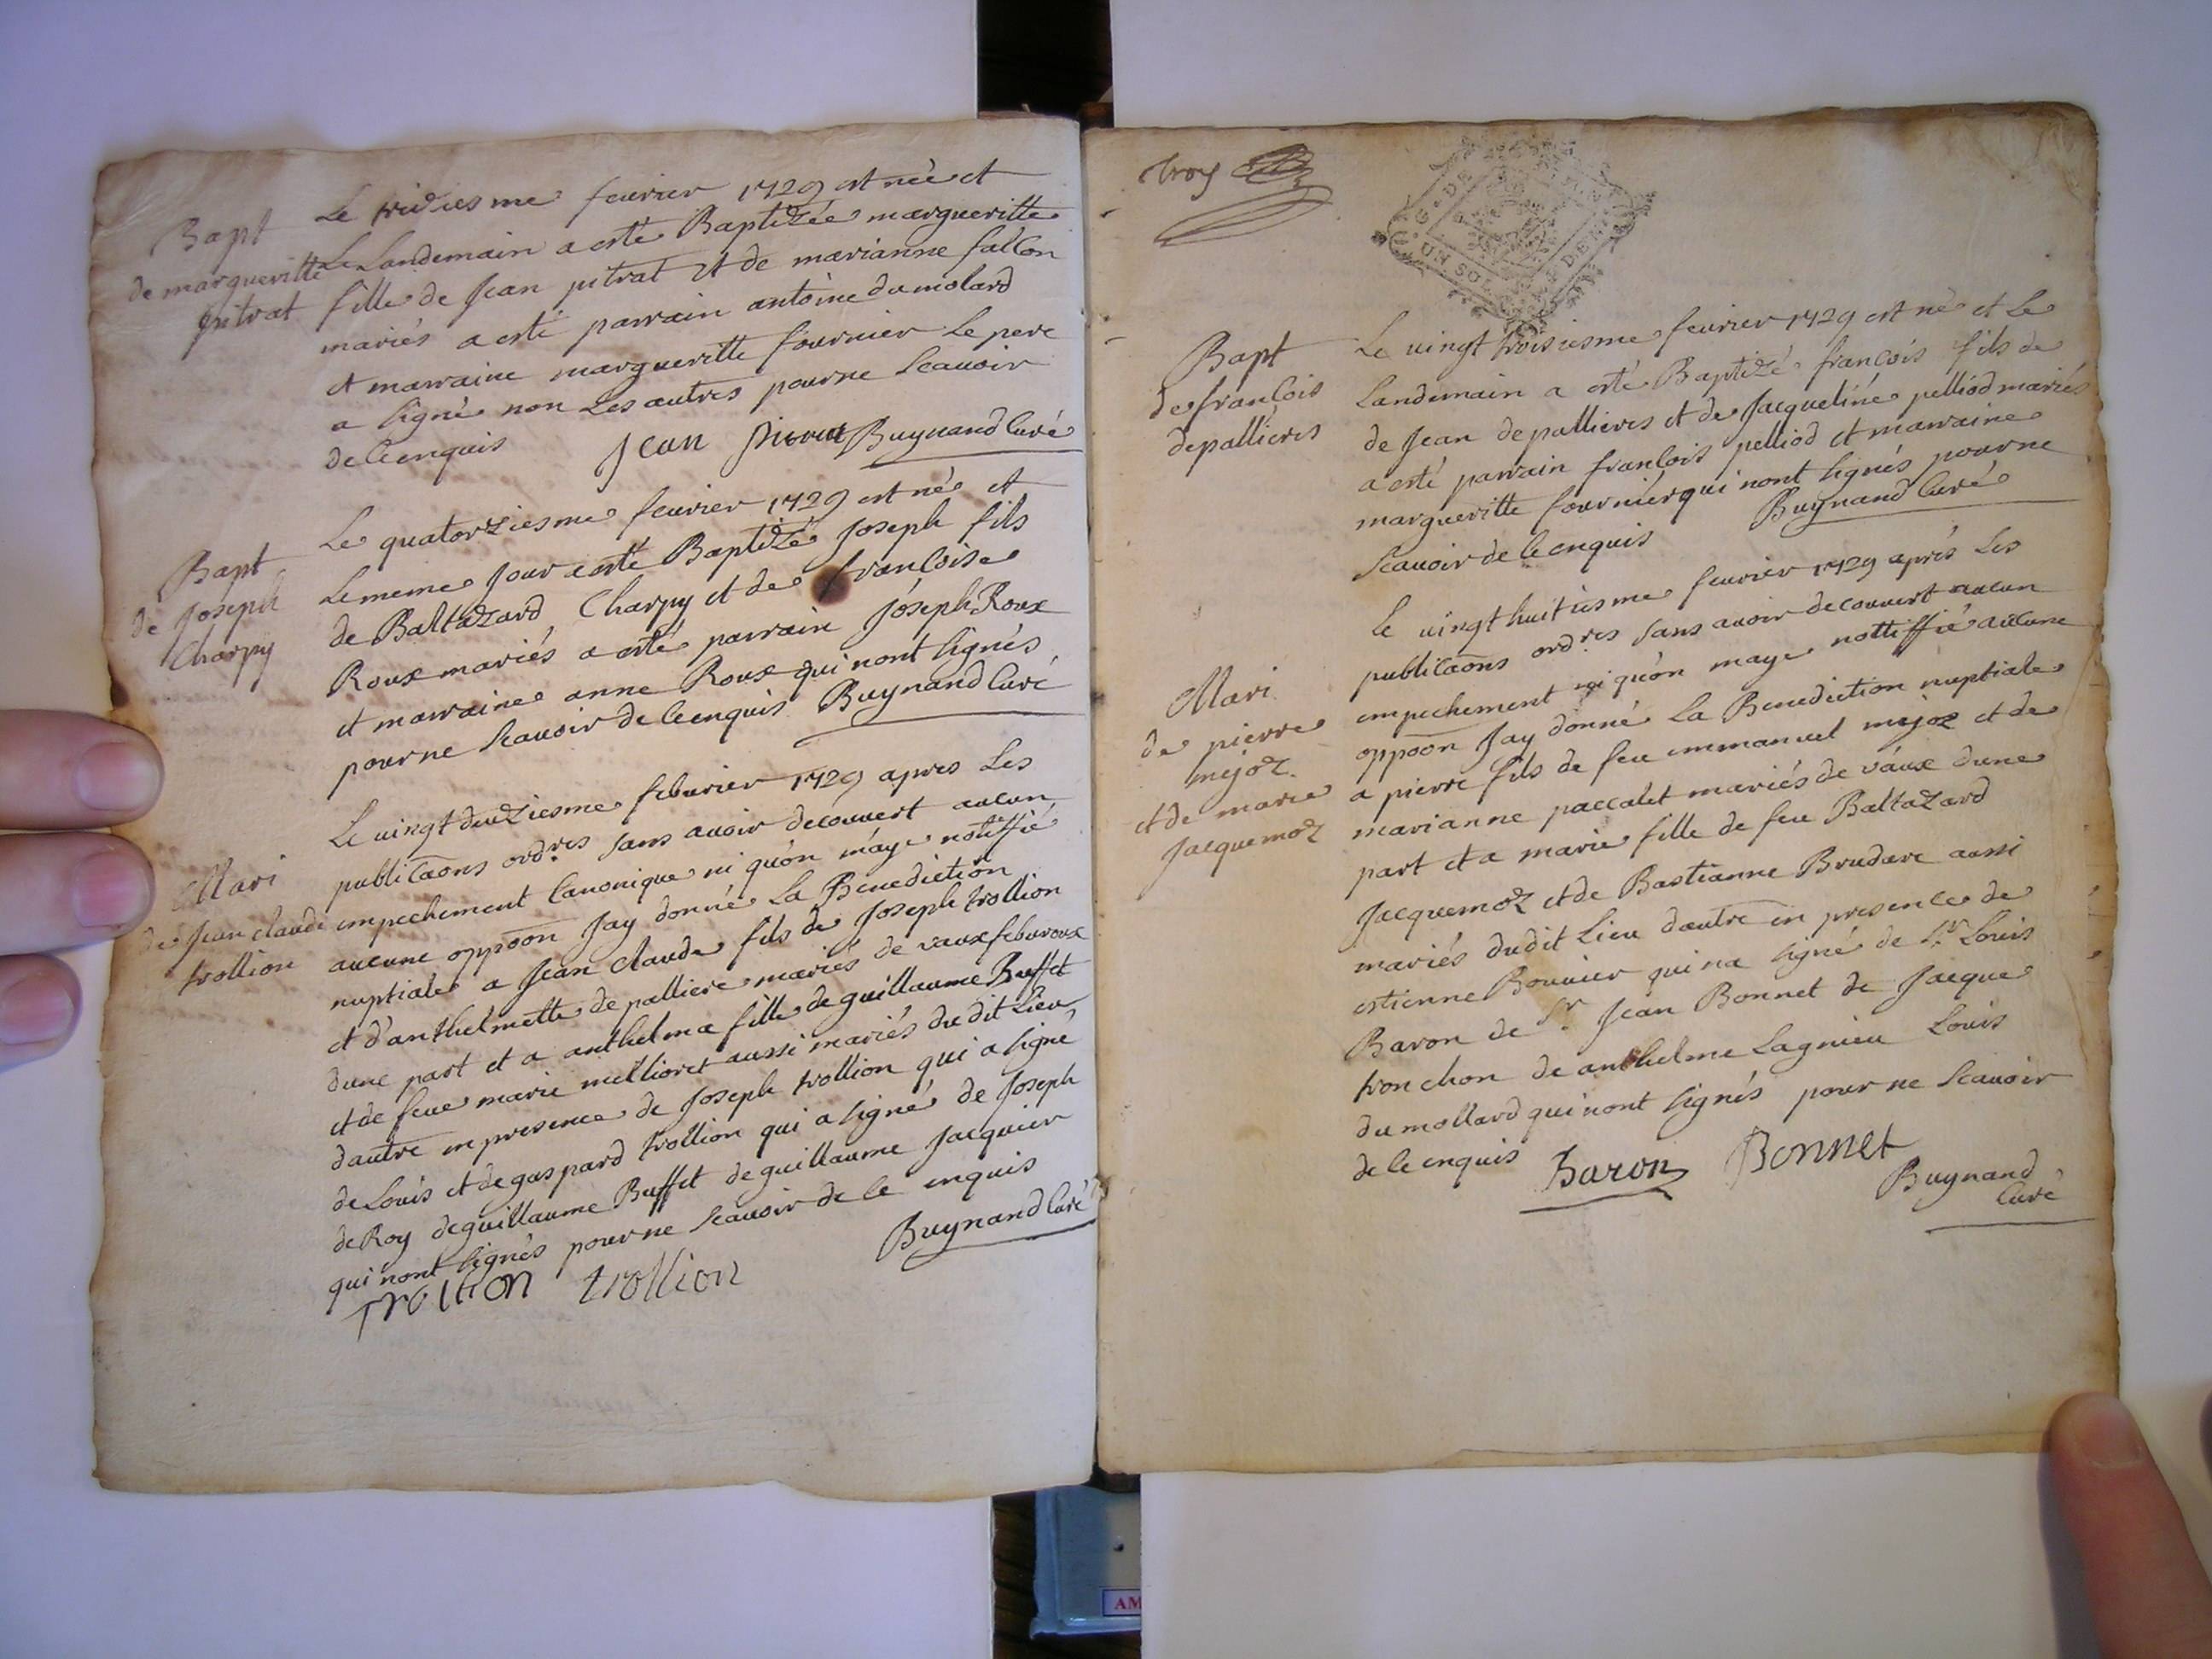 Bapt
de margueritte
pitrat
Le treiziesme feurier 1729 est née et
Le Landemain a esté Baptizée margueritte
fille de Jean pitrat et de marianne fallon
mariés a esté parrain antoine du molard
et marraine margueritte fournier Le pere
a signé non Les autres pour ne scauoir
de ce enquis
Jean pitrat Buynand Curé
Bapt
de Joseph
Charpy
Le quatorziesme feurier 1729 est né et
Le meme Jour a esté Baptizé Joseph fils
de Baltazard Charpy et de francoise
Roux mariés a esté parrain Joseph Roux
et marraine anne Roux qui nont signés
pour ne scauoir de ce enquis Buynand Curé
Mari
de Jean claude
trollion
Le uingt deuziesme feburier 1729 apres Les
publicaons ord.res sans auoir decouuert aucun
empechement Canonique ni quon m'aye notiffié
aucune oppoon Jay donné La Benediction
nuptiale a Jean claude fils de Joseph trollion
et d'anthelmette de palliere mariés de vaux feburoux
dune part et a anthelma fille de guillaume Buffet
et de feue marie millioret aussi mariés du dit Lieu
dautre en presence de Joseph trollion qui a signé
de Louis et de gaspard trollion qui a signé de Joseph
de Roy de guillaume Buffet de guillaume Jacquier
qui nont signés pour ne scauoir de ce enquis
trollion trollion
Buynand Curé
troy
G. DE
UN SOL
Bapt
de francois
depallieres
Le uingt troisiesme feurier 1729 est né et Le
Landemain a esté Baptizé francois fils de
de Jean depallieres et de Jacqueline pelliod mariés
a esté parrain francois pelliod et marraine
margueritte fournier qui nont signés pour ne
scauoir de ce enquis Buynand Curé
Mari
de pierre
mejoz
et de marie
Jacquemoz
Le uingt huitiesme feurier 1729 aprés Les
publicaons ord.res sans auoir decouuert aucun
empechement ni qu'on maye nottiffié aucune
oppoon Jay donné La Benediction nuptiale
a pierre fils de feu emmanuel mejoz et de
marianne paccalet mariés de vaux dune
part et a marie fille de feu Baltazard
Jacquemoz et de Bastianne Brudare aussi
mariés dudit Lieu dautre en presence de
estienne Bouuier qui na signé de Sr Louis
Baron de Sr Jean Bonnet de Jacque
tronchon de anthelme Lagnieu Louis
du mollard qui nont signés pour ne scauoir
de ce enquis
Baron Bonnet
Buynand
Curé
AM